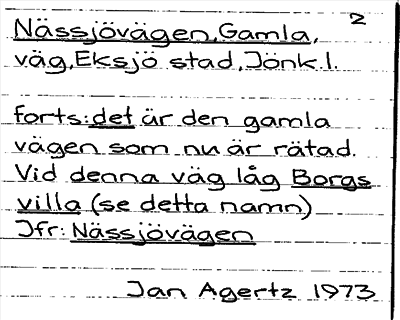 2
Nässjövägen, Gamla,
väg, Eksjö stad, Jönk.l.
forts: det är den gamla
vägen som nu är rätad.
Vid denna väg låg Borgs
villa (se detta namn)
Jfr: Nässjövägen
Jan Agertz 1973